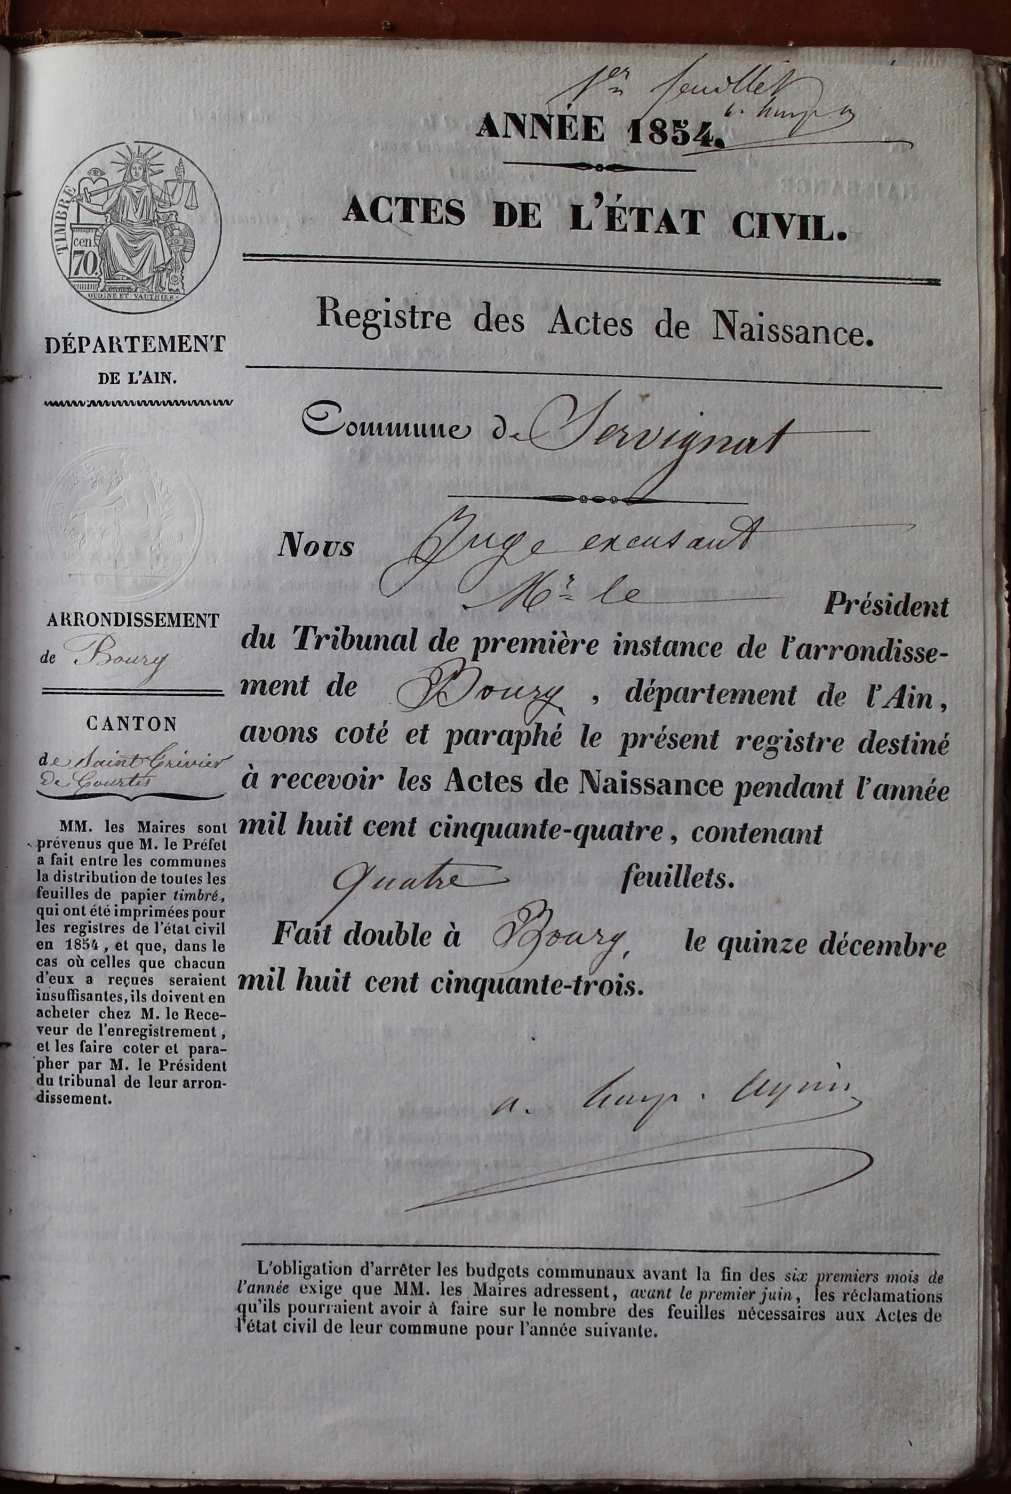 1er feuillet
ANNÉE 1854.
ACTES DE L'ÉTAT CIVIL.
TIMBRE
cen.
70
OUDINÉ ET VAUTHIER
DÉPARTEMENT
DE L'AIN.
Registre des Actes de Naissance.
Commune de Servignat
Nous Juge excusant
Mr le Président
ARRONDISSEMENT
de Bourg
du Tribunal de première instance de l'arrondisse-
ment de Bourg, département de l'Ain,
avons coté et paraphé le présent registre destiné
à recevoir les Actes de Naissance pendant l'année
mil huit cent cinquante-quatre, contenant
quatre feuillets.
Fait double à Bourg, le quinze décembre
mil huit cent cinquante-trois.
CANTON
de Saint Trivier
de Courtes
MM. les Maires sont
prévenus que M. le Préfet
a fait entre les communes
la distribution de toutes les
feuilles de papier timbré,
qui ont été imprimées pour
les registres de l'état civil
en 1854, et que, dans le
cas où celles que chacun
d'eux a reçues seraient
insuffisantes, ils doivent en
acheter chez M. le Rece-
veur de l'enregistrement,
et les faire coter et para-
pher par M. le Président
du tribunal de leur arron-
dissement.
L'obligation d'arrêter les budgets communaux avant la fin des six premiers mois de
l'année exige que MM. les Maires adressent, avant le premier juin, les réclamations
qu'ils pourraient avoir à faire sur le nombre des feuilles nécessaires aux Actes de
l'état civil de leur commune pour l'année suivante.